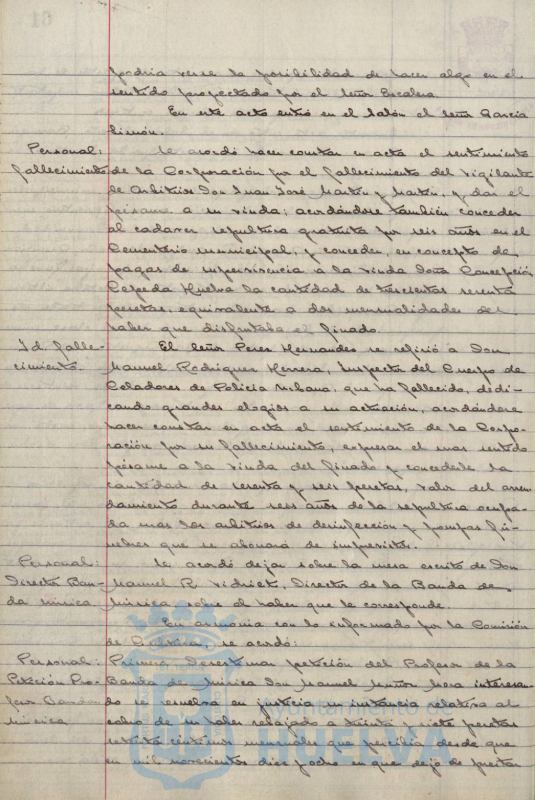 podria verse la posibilidad de hacer algo en el
sentido proyectado por el Señor Escalera.
En este acto entró en el Salón el Señor Garcia
Limón.
Personal: Se acordó hacer constar en acta el sentimiento
fallecimiento de la Corporación por el fallecimiento del vigilante
de Arbitrios Don Juan José Martin y Martin, y dar el
pésame a su viuda; acordándose también conceder
al cadaver sepultura gratuita por seis años en el
Cementerio municipal, y conceder, en concepto de
pagas de supervivencia a la viuda Doña Concepción
Cepeda Huelva la cantidad de trescientas sesenta
pesetas, equivalente a dos mensualidades del
haber que disfrutaba el finado.
Id. falle- El Señor Perez Hernandez se refirió a Don
cimiento. Manuel Rodriguez Herrera, Inspector del Cuerpo de
Celadores de Policia Urbana, que ha fallecido, dedi-
cando grandes elogios a su actuación, acordándose
hacer constar en acta el sentimiento de la Corpo-
ración por su fallecimiento, expresar el mas sentido
pésame a la viuda del finado y concederle la
cantidad de sesenta y seis pesetas, valor del arren-
damiento durante seis años de la sepultura ocupa-
da mas los arbitrios de desinfección y pompas fú-
nebres que se abonará de imprevistos.
Personal: Se acordó dejar sobre la mesa escrito de Don
Director Ban- Manuel R. Vidriet, Director de la Banda de
da música. música sobre el haber que le corresponde.
En armonia con lo informado por la Comisión
de Cultura, se acordó:
Personal: Primero. Desestimar petición del Profesor de la
Petición Pro- Banda de música Don Manuel Muñoz Mora interesan-
fesor Banda do se resuelva en justicia su instancia relativa al
música cobro de su haber rebajado a treinta y siete pesetas
céntimos mensuales que percibia desde que
en mil novecientos diez y ocho en que dejó de prestar
Ayuntamiento de
HUELVA